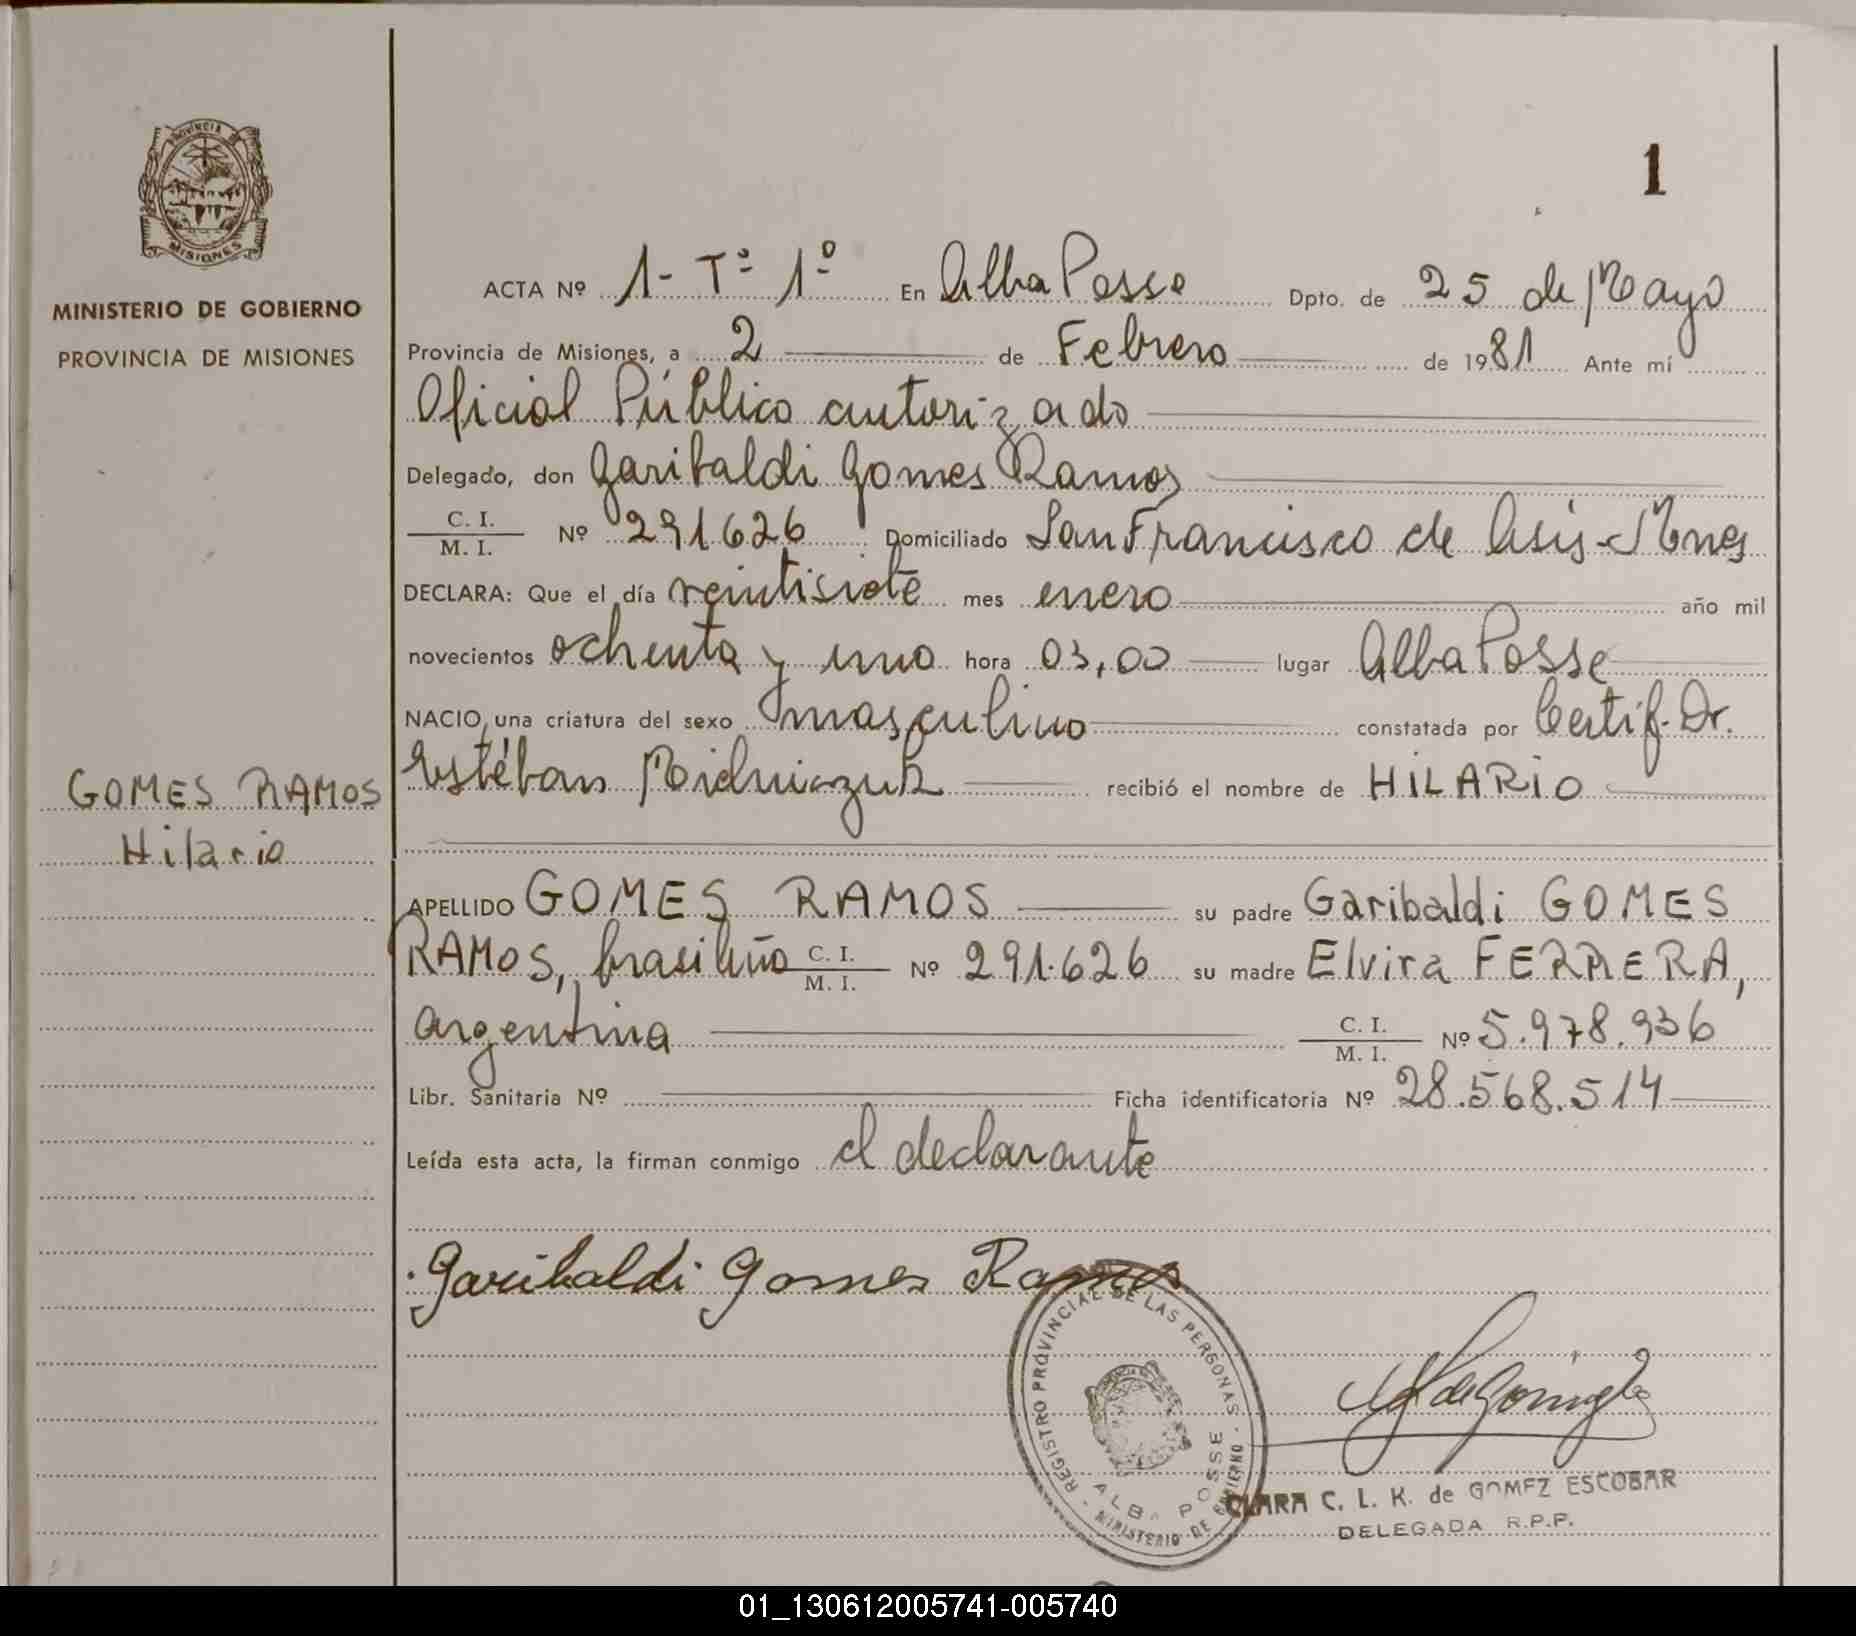 PROVINCIA DE
MISIONES
MINISTERIO DE GOBIERNO
PROVINCIA DE MISIONES
GOMES RAMOS
Hilario
1
ACTA Nº 1- Tº 1º En Alba Posse Dpto. de 25 de Mayo
Provincia de Misiones, a 2 de Febrero de 1981 Ante mí
Oficial Público autorizado
Delegado, don Garibaldi Gomes Ramos
C. I.
M. I. Nº 291626 Domiciliado San Francisco de Asis - Mnes
DECLARA: Que el día veintisiete mes enero año mil
novecientos ochenta y uno hora 03,00 lugar Alba Posse
NACIO, una criatura del sexo masculino constatada por Certif. Dr.
Estéban recibió el nombre de HILARIO
APELLIDO GOMES RAMOS su padre Garibaldi GOMES
RAMOS, brasileño C. I.
M. I. Nº 291.626 su madre Elvira FERRERA,
argentina C. I.
M. I. Nº 5.978.936
Libr. Sanitaria Nº Ficha identificatoria Nº 28.568.514
Leída esta acta, la firman conmigo el declarante
Garibaldi Gomes Ramos
REGISTRO PROVINCIAL DE LAS PERSONAS
ALBA POSSE
- MINISTERIO DE GOBIERNO -
CLARA C. L. K. de GOMEZ ESCOBAR
DELEGADA R.P.P.
01_130612005741-005740